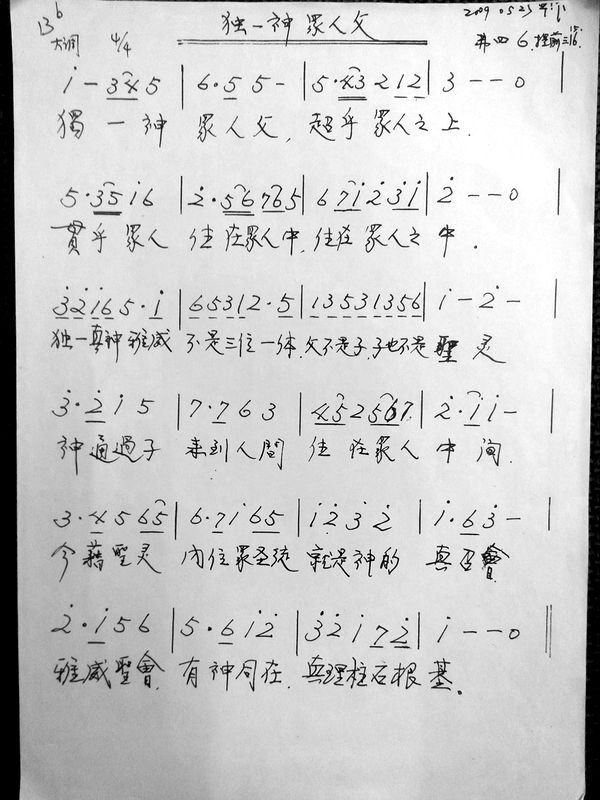 B♭ 大调 4/4 独一神众人父 2009.05.23
弗四6. 提前三15,16.
i - 3 4 5 | 6 · 5 5 - | 5 · 4 3 2 1 2 | 3 - - 0 |
獨一神 眾人父, 超乎眾人之上.
5 · 3 5 i 6 | 2 · 5 6 7 6 5 | 6 7 i 2 3 i | 2 - - 0 |
貫乎眾人 住在眾人中, 住在眾人之中.
3 2 i 6 5 · i | 6 5 3 1 2 · 5 | 1 3 5 3 1 3 5 6 | i - 2 - |
独一真神雅威 不是三位一体, 父不是子, 子也不是聖灵
3 · 2 i 5 | 7 · 7 6 3 | 4 5 2 5 6 7 | 2 · i i - |
神通過子 来到人間 住在眾人中间.
3 · 4 5 6 5 | 6 · 7 i 6 5 | i 2 3 2 | i · 6 3 - |
今藉聖灵 内住眾圣徒 就是神的 真召會
2 · i 5 6 | 5 · 6 i 2 | 3 2 i 7 2 | i - - 0 ||
雅威聖會, 有神同在, 真理柱石根基.